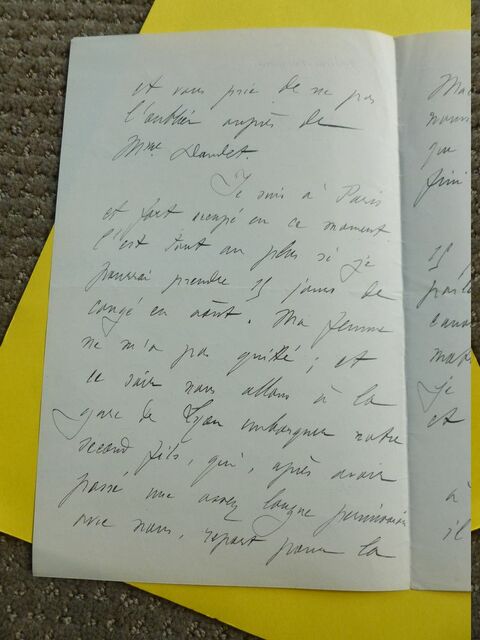 et vous prie de ne pas
l'oublier auprès de
Mme Daudet.
Je suis à Paris
et fort occupé en ce moment
c'est tout au plus si je
pourrai prendre 15 jours de
congé en août. Ma femme
ne m'a pas quitté ; et
ce soir nous allons à la
gare de Lyon embarquer notre
second fils, qui, après avoir
passé une assez longue permission
avec nous, repart pour la
Ma
que
fini
15
je
et
à
il